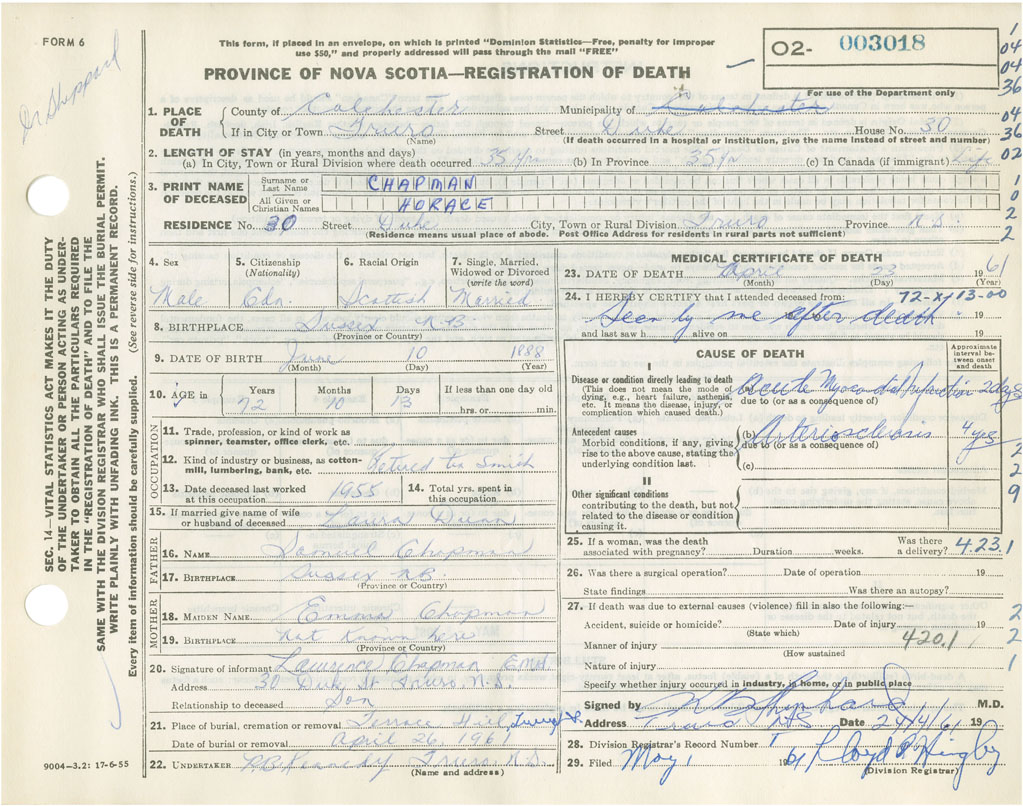 FORM 6
Dr Sheppard
This form, if placed in an envelope, on which is printed "Dominion Statistics—Free, penalty for improper
use $50," and properly addressed will pass through the mail "FREE"
PROVINCE OF NOVA SCOTIA—REGISTRATION OF DEATH
O2- 003018
For use of the Department only
1
04
04
36
04
36
02
1
0
2
2
SEC. 14—VITAL STATISTICS ACT MAKES IT THE DUTY
OF THE UNDERTAKER OR PERSON ACTING AS UNDER-
TAKER TO OBTAIN ALL THE PARTICULARS REQUIRED
IN THE "REGISTRATION OF DEATH" AND TO FILE THE
SAME WITH THE DIVISION REGISTRAR WHO SHALL ISSUE THE BURIAL PERMIT.
WRITE PLAINLY WITH UNFADING INK. THIS IS A PERMANENT RECORD.
Every item of information should be carefully supplied. (See reverse side for instructions.)
1. PLACE OF DEATH County of Colchester Municipality of Colchester
If in City or Town Truro Street Duke House No. 30
(Name) (If death occurred in a hospital or institution, give the name instead of street and number)
2. LENGTH OF STAY (in years, months and days)
(a) In City, Town or Rural Division where death occurred 35 yrs (b) In Province 35 yr (c) In Canada (if immigrant) Life
3. PRINT NAME OF DECEASED Surname or Last Name CHAPMAN
All Given or Christian Names HORACE
RESIDENCE No. 30 Street Duke City, Town or Rural Division Truro Province N.S.
(Residence means usual place of abode. Post Office Address for residents in rural parts not sufficient)
4. Sex 5. Citizenship (Nationality) 6. Racial Origin 7. Single, Married, Widowed or Divorced (write the word)
Male Cdn. Scottish Married
8. BIRTHPLACE Sussex N.B.
(Province or Country)
9. DATE OF BIRTH June 10 1888
(Month) (Day) (Year)
10. AGE in Years Months Days If less than one day old
72 10 13 hrs. or min.
OCCUPATION
11. Trade, profession, or kind of work as
spinner, teamster, office clerk, etc.
12. Kind of industry or business, as cotton-
mill, lumbering, bank, etc. Retired tin Smith
13. Date deceased last worked
at this occupation 1955 14. Total yrs. spent in
this occupation
15. If married give name of wife
or husband of deceased Laura Dunn
FATHER
16. NAME Samuel Chapman
17. BIRTHPLACE Sussex N.B.
(Province or Country)
MOTHER
18. MAIDEN NAME Emma Chapman
19. BIRTHPLACE Not Known here
(Province or Country)
20. Signature of informant Lawrence Chapman
Address 30 Duke St Truro, N.S.
Relationship to deceased Son
21. Place of burial, cremation or removal Terrace Hill, Truro N.S.
Date of burial or removal April 26, 1961
22. UNDERTAKER Truro N.S.
(Name and address)
9004—3.2: 17-6-55
MEDICAL CERTIFICATE OF DEATH
23. DATE OF DEATH April 23 1961
(Month) (Day) (Year)
24. I HEREBY CERTIFY that I attended deceased from: 72-X-13-00
Seen by me after death 19
and last saw h alive on 19
CAUSE OF DEATH
Approximate interval between onset and death
I
Disease or condition directly leading to death
(This does not mean the mode of dying, e.g., heart failure, asthenia, etc. It means the disease, injury, or complication which caused death.)
(a) Acute Myocardial Infarction 2 days
due to (or as a consequence of)
Antecedent causes
Morbid conditions, if any, giving rise to the above cause, stating the underlying condition last.
(b) Arteriosclerosis 4 yrs
due to (or as a consequence of)
(c)
II
Other significant conditions
contributing to the death, but not related to the disease or condition causing it.
2
2
9
25. If a woman, was the death
associated with pregnancy? Duration weeks. Was there a delivery? 4.23.1
26. Was there a surgical operation? Date of operation 19
State findings Was there an autopsy?
27. If death was due to external causes (violence) fill in also the following:—
Accident, suicide or homicide? Date of injury 19
(State which)
Manner of injury 420.1
(How sustained)
Nature of injury
Specify whether injury occurred in industry, in home, or in public place
2
2
1
Signed by M.D.
Address Truro N.S Date 24/4/61 19
28. Division Registrar's Record Number
29. Filed May 1 1961
(Division Registrar)